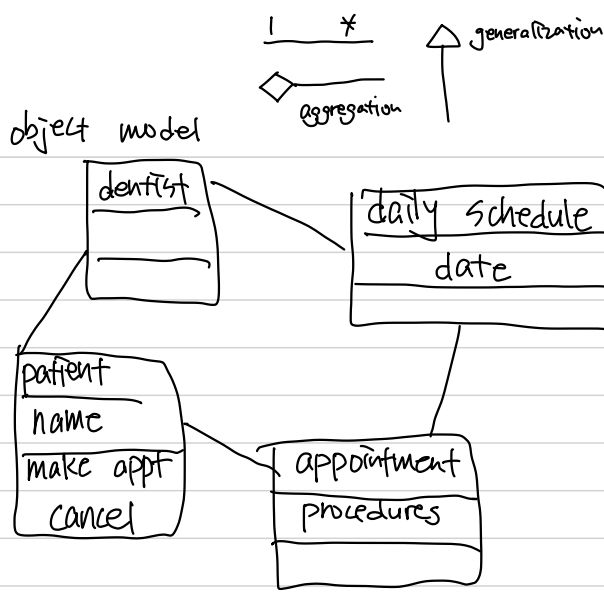 1 *
generalization
aggregation
object model
dentist
daily schedule
date
patient
name
make appt
cancel
appointment
procedures